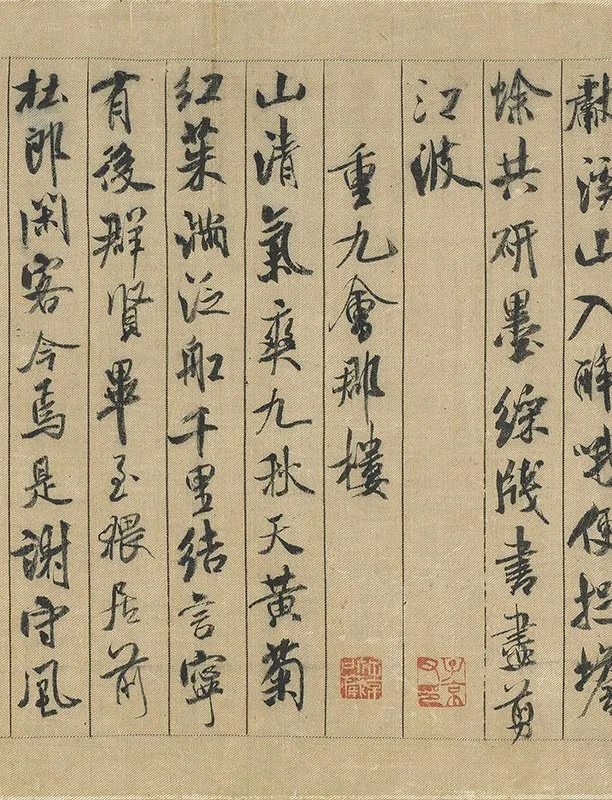 獻溪山入醉哦便捉蟾
蜍共研墨綵牋書盡剪
江波
子京父印
重九會郡樓
山清氣爽九秋天黃菊
紅茱滿泛船千里結言寧
有後群賢畢至猥居前
杜郎閑客今焉是謝守風